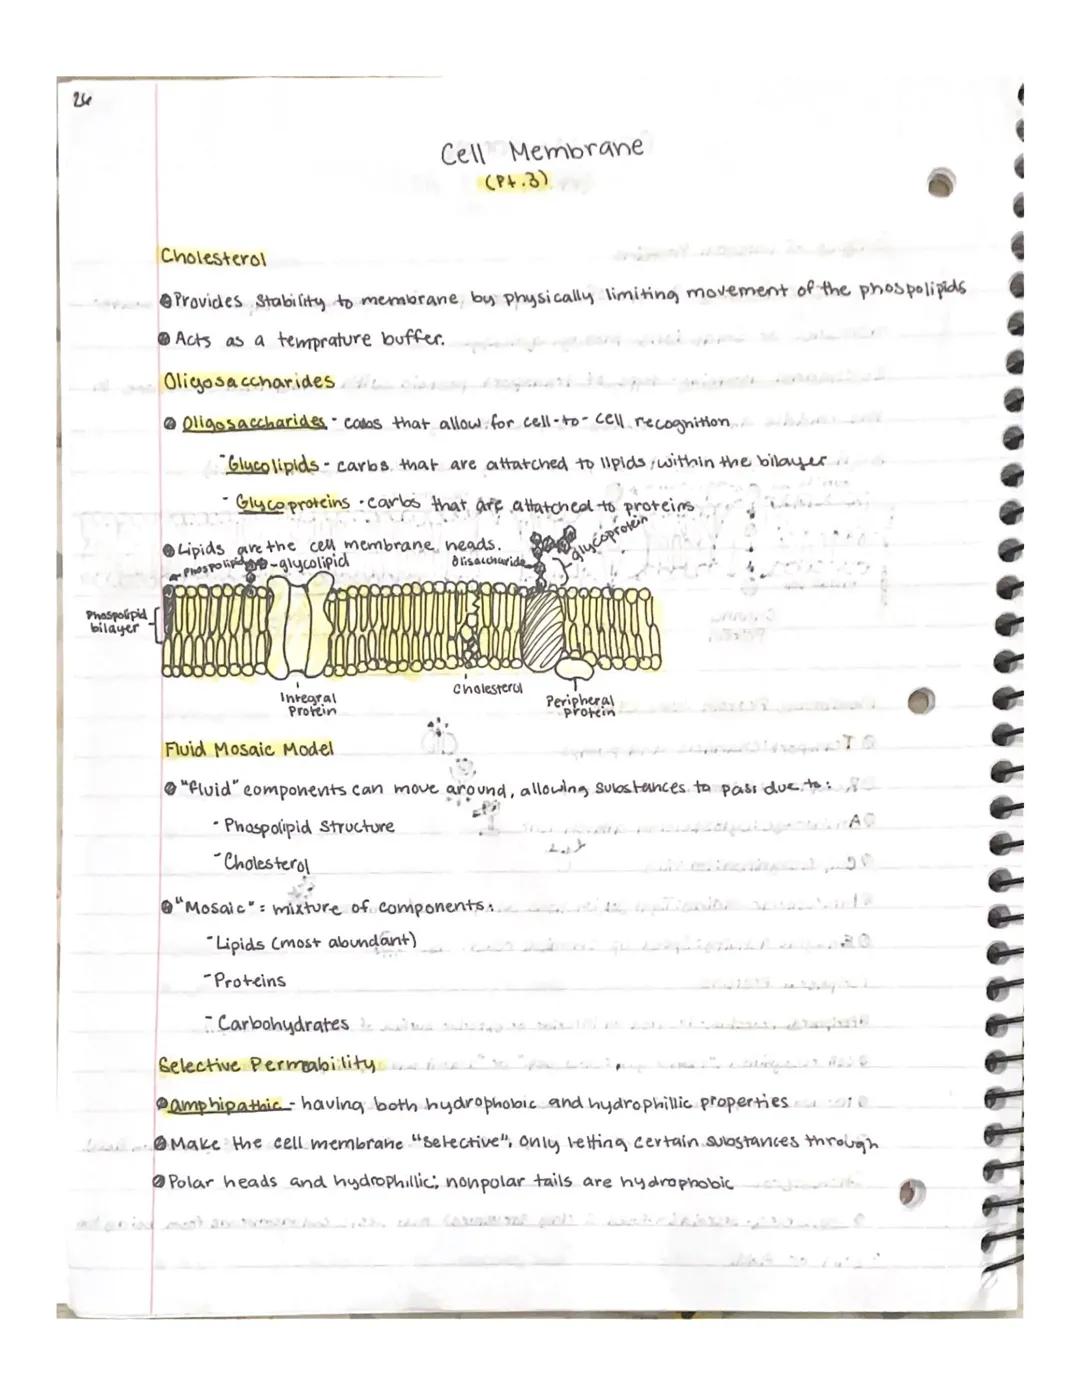 26
Cell Membrane
(Pt.3)
Cholesterol
Provides stability to membrane by physically limiting movement of the phospolipids
Acts as a temprature buffer.
Oligosaccharides
Oligosaccharides - carbs that allow for cell-to-cell recognition
- Glycolipids - carbs that are attatched to lipids within the bilayer
- Glycoproteins - carbs that are attatched to proteins
Lipids are the cell membrane heads.
Phospolipid
glycolipid
Olisaccharide
glycoprotein
Phospolipid
bilayer
Integral
Protein
Cholesterol
Peripheral
protein
Fluid Mosaic Model
"fluid" components can move around, allowing substances to pass due to:
- Phospolipid Structure
- Cholesterol
"Mosaic": mixture of components:
- Lipids (most abundant)
- Proteins
- Carbohydrates
Selective Permability
amphipathic - having both hydrophobic and hydrophillic properties
Make the cell membrane "selective", only letting certain substances through
Polar heads and hydrophillic; nonpolar tails are hydrophobic